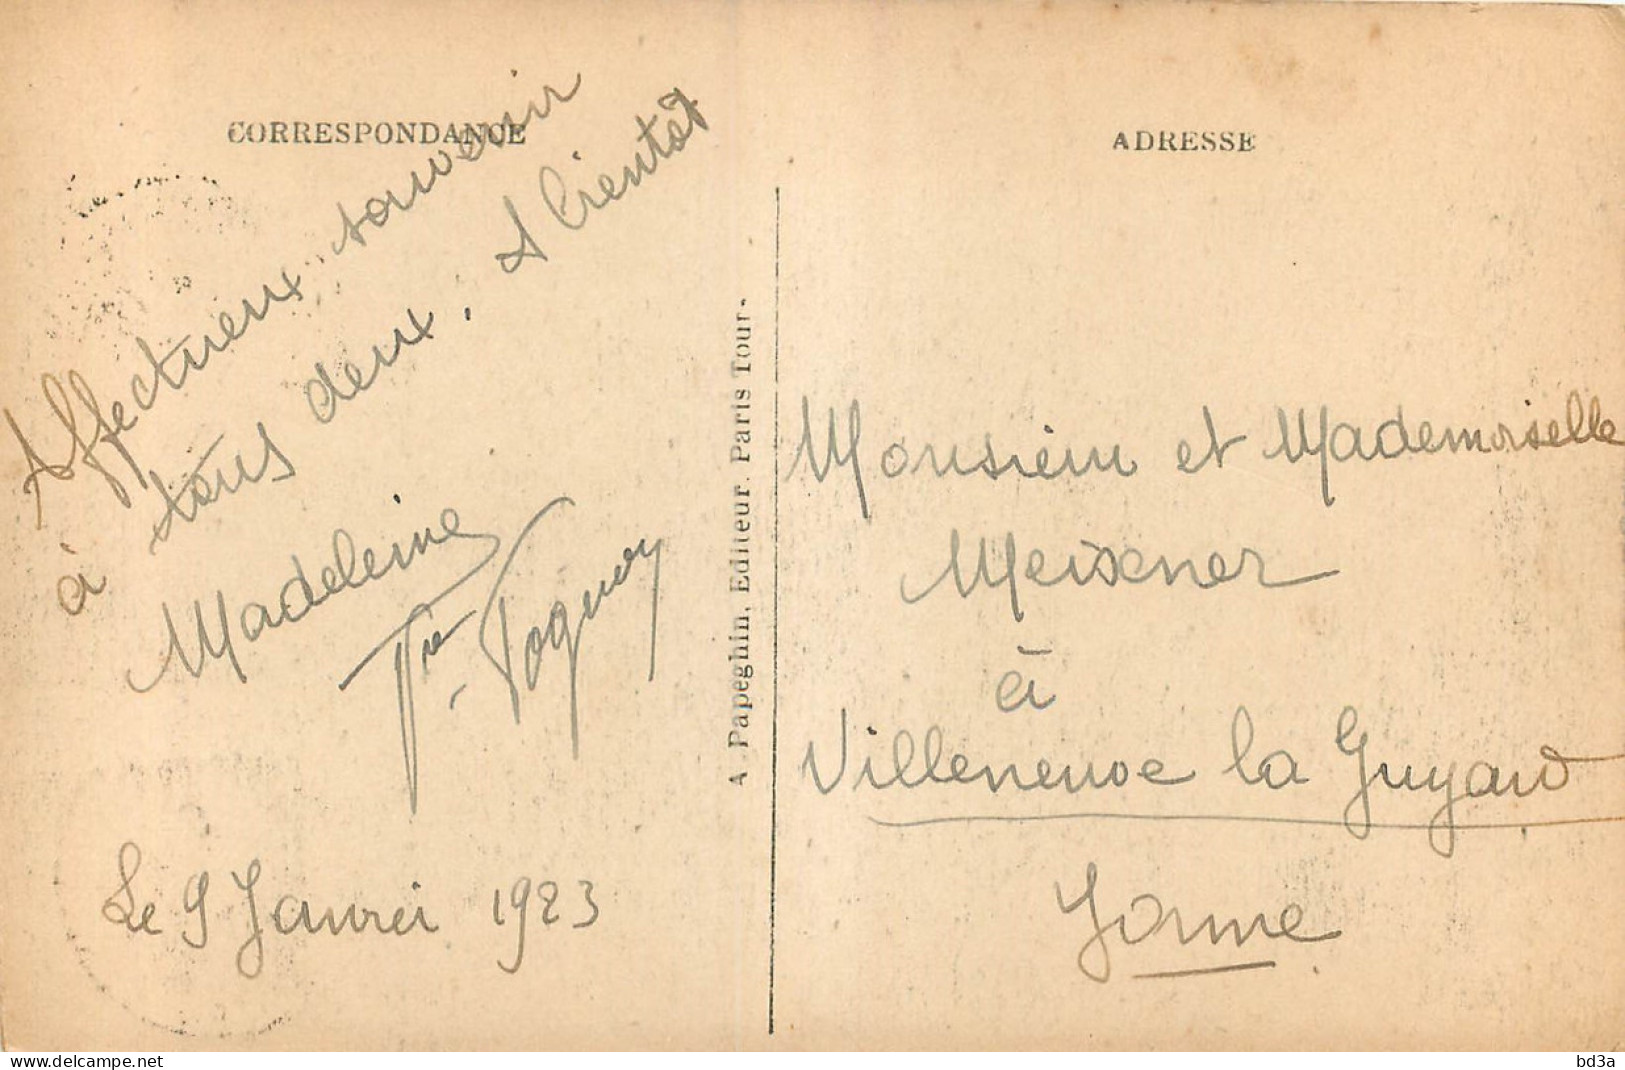 CORRESPONDANCE
Affectueux souvenir
à tous deux. A bientôt
Madeleine
Le 9 Janvier 1923
A. Papeghin, Editeur. Paris Tour.
ADRESSE
Monsieur et Mademoiselle
Meixener
à
Villeneuve la Guyard
Yonne
www.delcampe.net
bd3a